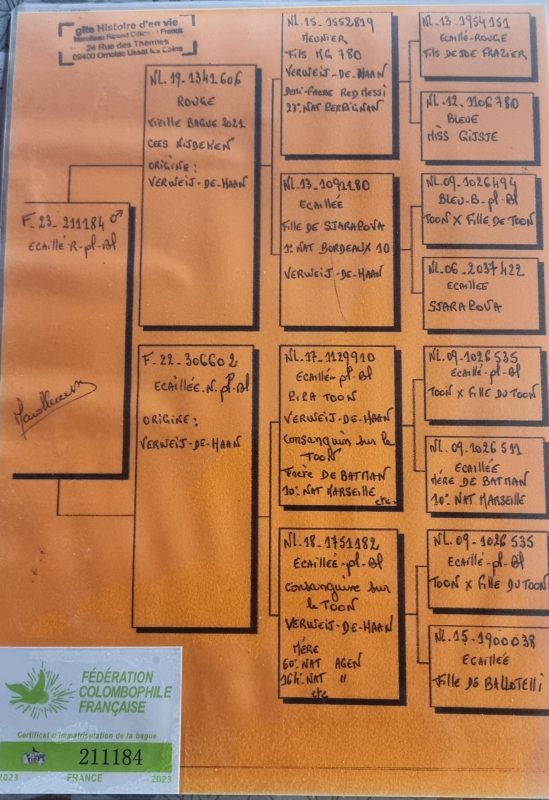 gîte Histoire d'en vie
24 Rue des Thermes
09400 Ornolac Ussat les Bains
F-23-211184 ♂
ECAILLÉ-R-pl-Bl
NL.19-1341606
ROUGE
VIEILLE BAGUE 2021
CEES NIJDEKEN
ORIGINE:
VERWEIJ-DE-HAAN
F-22-306602
ECAILLÉE.N.pl.Bl
ORIGINE:
VERWEIJ-DE-HAAN
NL.15-1552819
MEUNIER
FILS MG 780
VERWEIJ-DE-HAAN
DEMI-FRÈRE RED MESSI
22°.NAT PERPIGNAN
NL.13-1091180
ECAILLÉE
FILLE DE SJARAPOVA
1°.NAT BORDEAUX 10
VERWEIJ-DE-HAAN
NL-17-1129910
ECAILLÉ-pl-Bl
PIPA TOON
VERWEIJ-DE-HAAN
Consanguin sur le
TOON
FRÈRE DE BATMAN
10°.NAT MARSEILLE
etc.
NL.18-1751182
ECAILLÉE-pl-Bl
Consanguine sur
le TOON
VERWEIJ-DE-HAAN
MÈRE
60°.NAT AGEN
164°.NAT "
etc
NL-13-1954151
ECAILLÉ-ROUGE
FILS DE JOE FRAZIER
NL-12-1106780
BLEUE
MISS GIJSJE
NL.09-1026494
BLEU-B-pl-Bl
TOON X FILLE DE TOON
NL.06-2037422
ECAILLEE
SJARAPOVA
NL.09-1026535
ECAILLÉ-pl-Bl
TOON X FILLE DU TOON
NL.09-1026511
ECAILLÉE
MÈRE DE BATMAN
10°.NAT MARSEILLE
NL-09-1026535
ECAILLÉ-pl-Bl
TOON X FILLE DU TOON
NL.15-1900038
ECAILLÉE
FILLE DE BALLOTELLI
FÉDÉRATION
COLOMBOPHILE
FRANÇAISE
Certificat d'immatriculation de la bague
211184
2023 FRANCE 2023